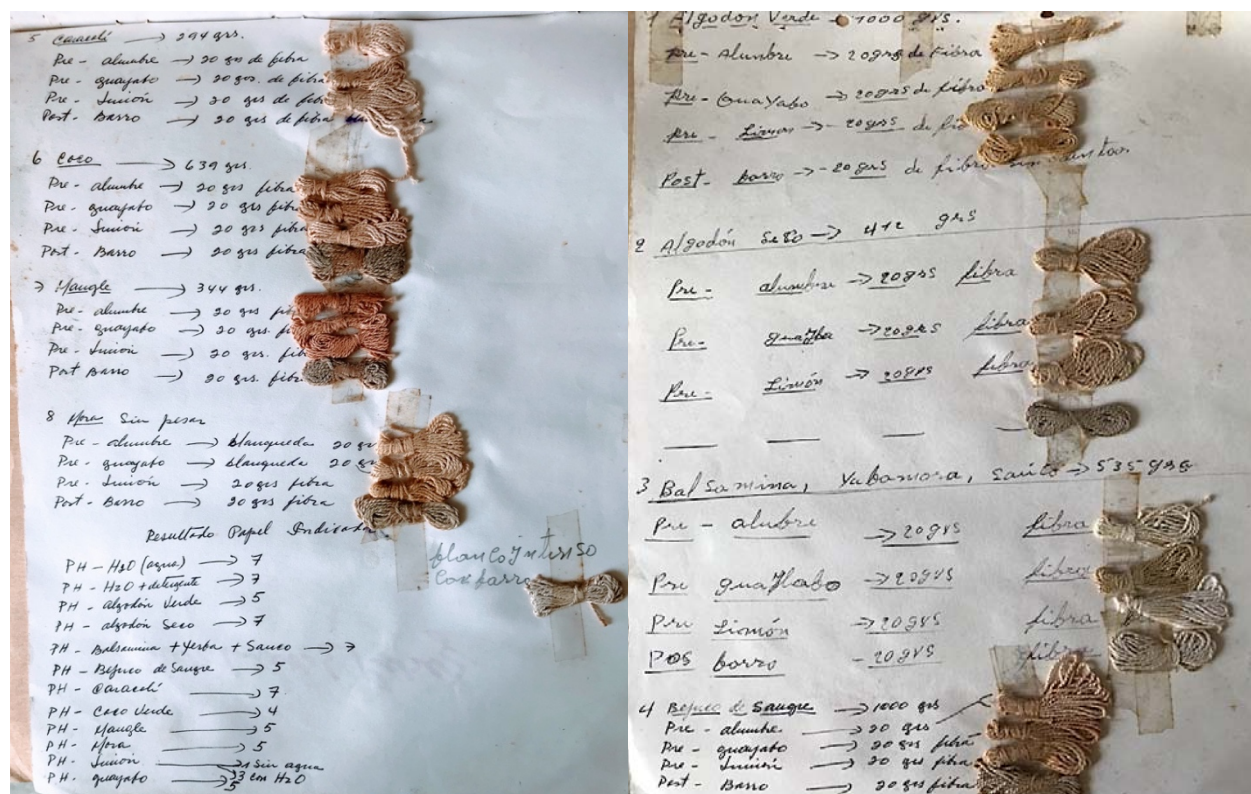 5 Caracolí → 294 grs.
Pre - alumbre → 20 grs de fibra
Pre - guayabo → 20 grs. de fibra
Pre - Limón → 20 grs de fib
Post - Barro → 20 grs de fibra
6 Coco → 639 grs.
Pre - alumbre → 20 grs fibra
Pre - guayabo → 20 grs fibra
Pre - Limón → 20 grs fibra
Post - Barro → 20 grs fibra
7 Mangle → 344 grs.
Pre - alumbre → 20 grs fib
Pre - guayabo → 20 grs. fi
Pre - Limón → 20 grs. fib
Post Barro → 20 grs. fibra
8 Mora Sin pesar
Pre - alumbre → blanqueda 20 gr
Pre - guayabo → blanqueda 20 g
Pre - Limón → 20 grs fibra
Post - Barro → 20 grs fibra
Resultado Papel Indicador
PH - H2O (agua) → 7
PH - H2O + detergente → 7
PH - algodón Verde → 5
PH - algodón Seco → 7
PH - Balsamina + Yerba + Sauco → 7
PH - Bejuco de Sangre → 5
PH - Caracolí → 7
PH - Coco Verde → 4
PH - Mangle → 5
PH - Mora → 5
PH - Limón → 1 Sin agua
→ 3 con H2O
PH - guayabo → 5
blanco Intenso
Con barro
1 Algodon Verde → 1000 grs.
Pre - Alumbre → 20grs de Fibra
Pre - Guayabo → 20grs de fibra
Pre - Limon → 20grs de fib
Post - barro → 20grs de fibra
2 Algodón Seco → 412 grs
Pre - alumbre → 20grs fibra
Pre - guayba → 20grs fibra
Pre - Limón → 20grs fibra
3 Balsamina, Yabamora, Sauco → 535 grs
Pre - alubre → 20grs fibra
Pre guaylabo → 20grs fibra
Pre Liomón → 20grs fibra
Pos borro - 20grs fibra
4 Bejuco de Sangre → 1000 grs
Pre - alumbre → 20 grs
Pre - guayabo → 20 grs fibra
Pre - Limón → 20 grs fibra
Post - Barro → 20 grs fibra